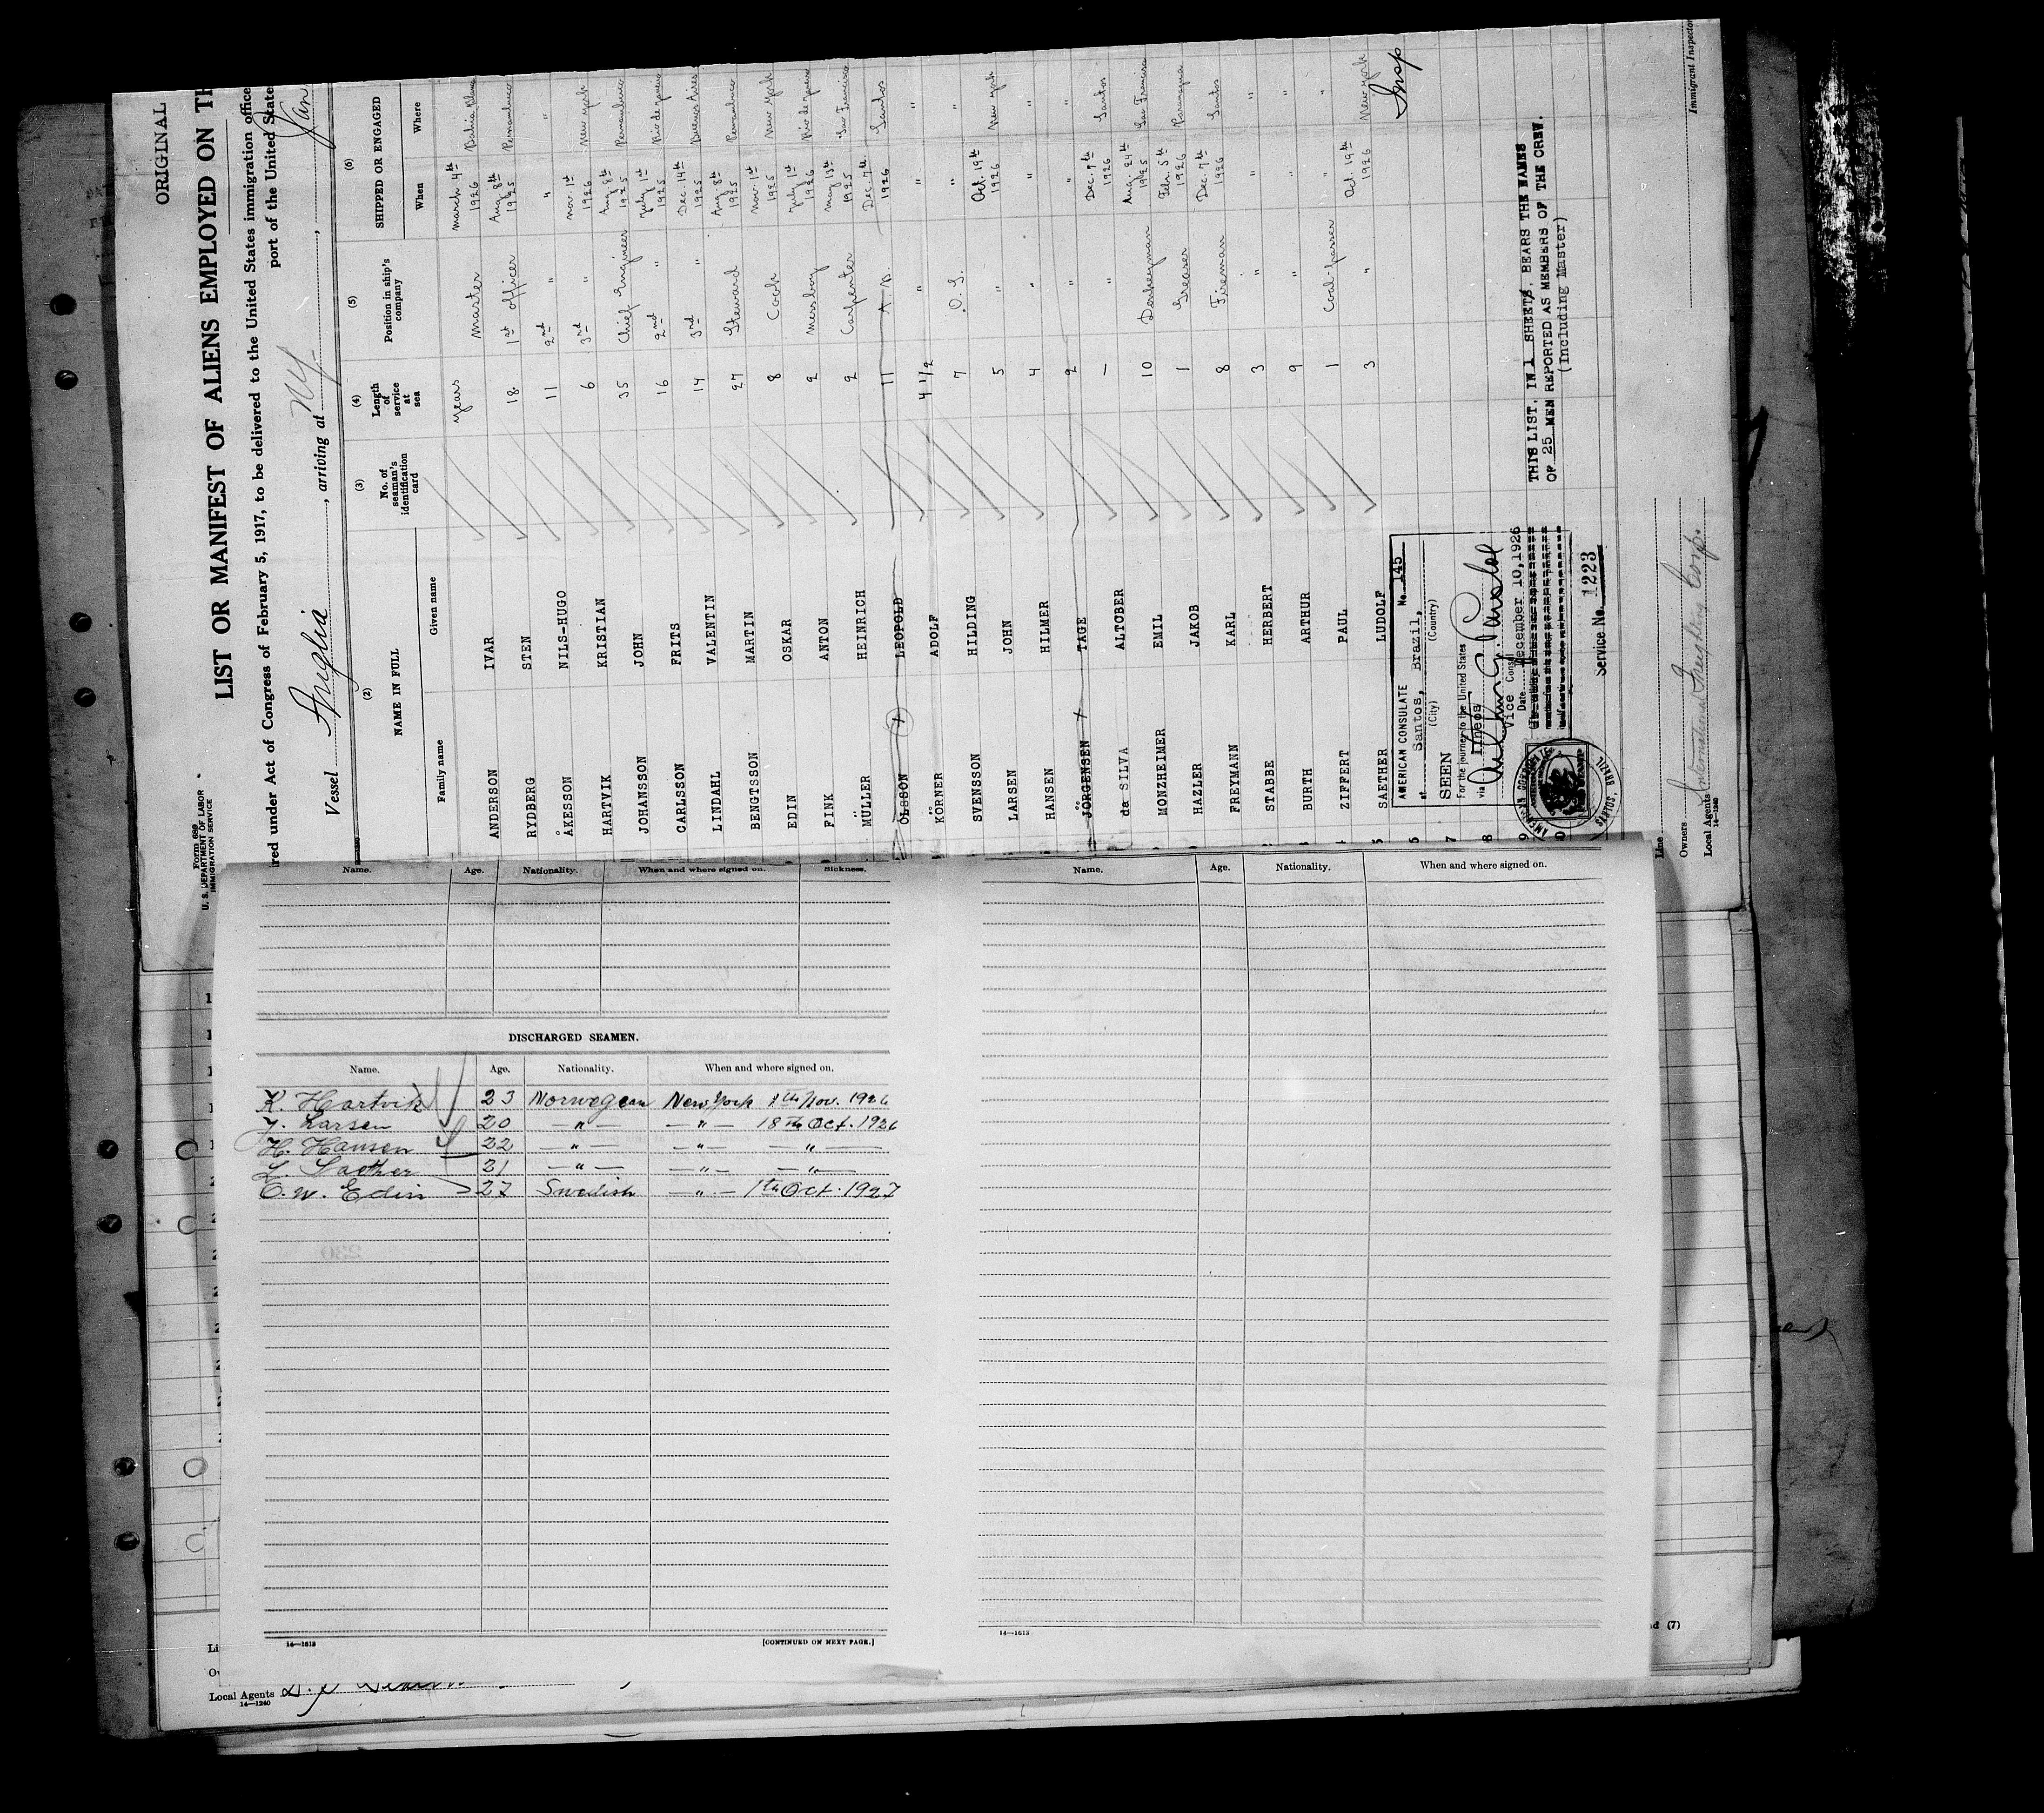 ORIGINAL
Form 689
U. S. DEPARTMENT OF LABOR
IMMIGRATION SERVICE
LIST OR MANIFEST OF ALIENS EMPLOYED ON TH
red under Act of Congress of February 5, 1917, to be delivered to the United States immigration office
port of the United State
Vessel Anglia, arriving at NY, Jan
(2) (3) (4) (5) (6)
NAME IN FULL No. of seaman's identification card Length of service at sea Position in ship's company SHIPPED OR ENGAGED
Family name Given name When Where
ANDERSON IVAR years Master March 4th 1926 Bahia Blanca
RYDBERG STEN 18 1st officer Aug. 8th 1925 Pernambuco
ÅKESSON NILS-HUGO 11 2nd " " "
HARTVIK KRISTIAN 6 3rd " Nov. 1st 1926 New York
JOHANSSON JOHN 35 Chief Engineer Aug 8th 1925 Pernambuco
CARLSSON FRITS 16 2nd " July 1st 1925 Rio de Janeiro
LINDAHL VALENTIN 14 3rd " Dec 14th 1925 Buenos Aires
BENGTSSON MARTIN 27 Steward Aug 8th 1925 Pernambuco
EDIN OSKAR 8 Cook Nov. 1st 1925 New York
FINK ANTON 2 Messboy July 1st 1926 Rio de Janeiro
MÜLLER HEINRICH 2 Carpenter May 13th 1925 Sao Francisco
OLSSON LEOPOLD 11 A.B. Dec. 7th 1926 Santos
KÖRNER ADOLF 4 1/2 " " "
SVENSSON HILDING 7 O.S. " "
LARSEN JOHN 5 " Oct. 19th 1926 New York
HANSEN HILMER 4 " " "
JÖRGENSEN TAGE 2 " " "
da SILVA ALTCBER – " Dec. 7th 1926 Santos
MONZHEIMER EMIL 10 Donkeyman Aug. 24th 1925 Sao Francisco
HAZLER JAKOB 1 Greaser Febr. 5th 1926 Paranagua
FREYMANN KARL 8 Fireman Dec. 7th 1926 Santos
STABBE HERBERT 3 " " "
BURTH ARTHUR 9 " " "
ZIFFERT PAUL 1 Coal-passer " "
SAETHER LUDOLF 3 " Oct. 19th 1926 New York
Insp
AMERICAN CONSULATE No. 145
at Santos, Brazil,
(City) (Country)
SEEN
For the journey to the United States
via
Vice Consul
Date December 10, 1926
Service No. 1223
THIS LIST, IN 1 SHEETS, BEARS THE NAMES
OF 25 MEN REPORTED AS MEMBERS OF THE CREW.
(Including Master)
Immigrant Inspector
Line
Owners International Freighting Corp.
Local Agents
14—1240
Name. Age. Nationality. When and where signed on. Sickness.
DISCHARGED SEAMEN.
Name. Age. Nationality. When and where signed on.
K. Hartvik 23 Norwegean New York 1th Nov. 1926
J. Larsen 20 — " — — " — 18th Oct. 1926
H. Hansen 22 — " — — " — — " —
L. Saether 21 — " — — " — — " —
O. W. Edin 27 Swedish — " — 1th Oct. 1927
14—1613 [CONTINUED ON NEXT PAGE.]
Name. Age. Nationality. When and where signed on.
14—1613
nd (7)
Local Agents
14—1240